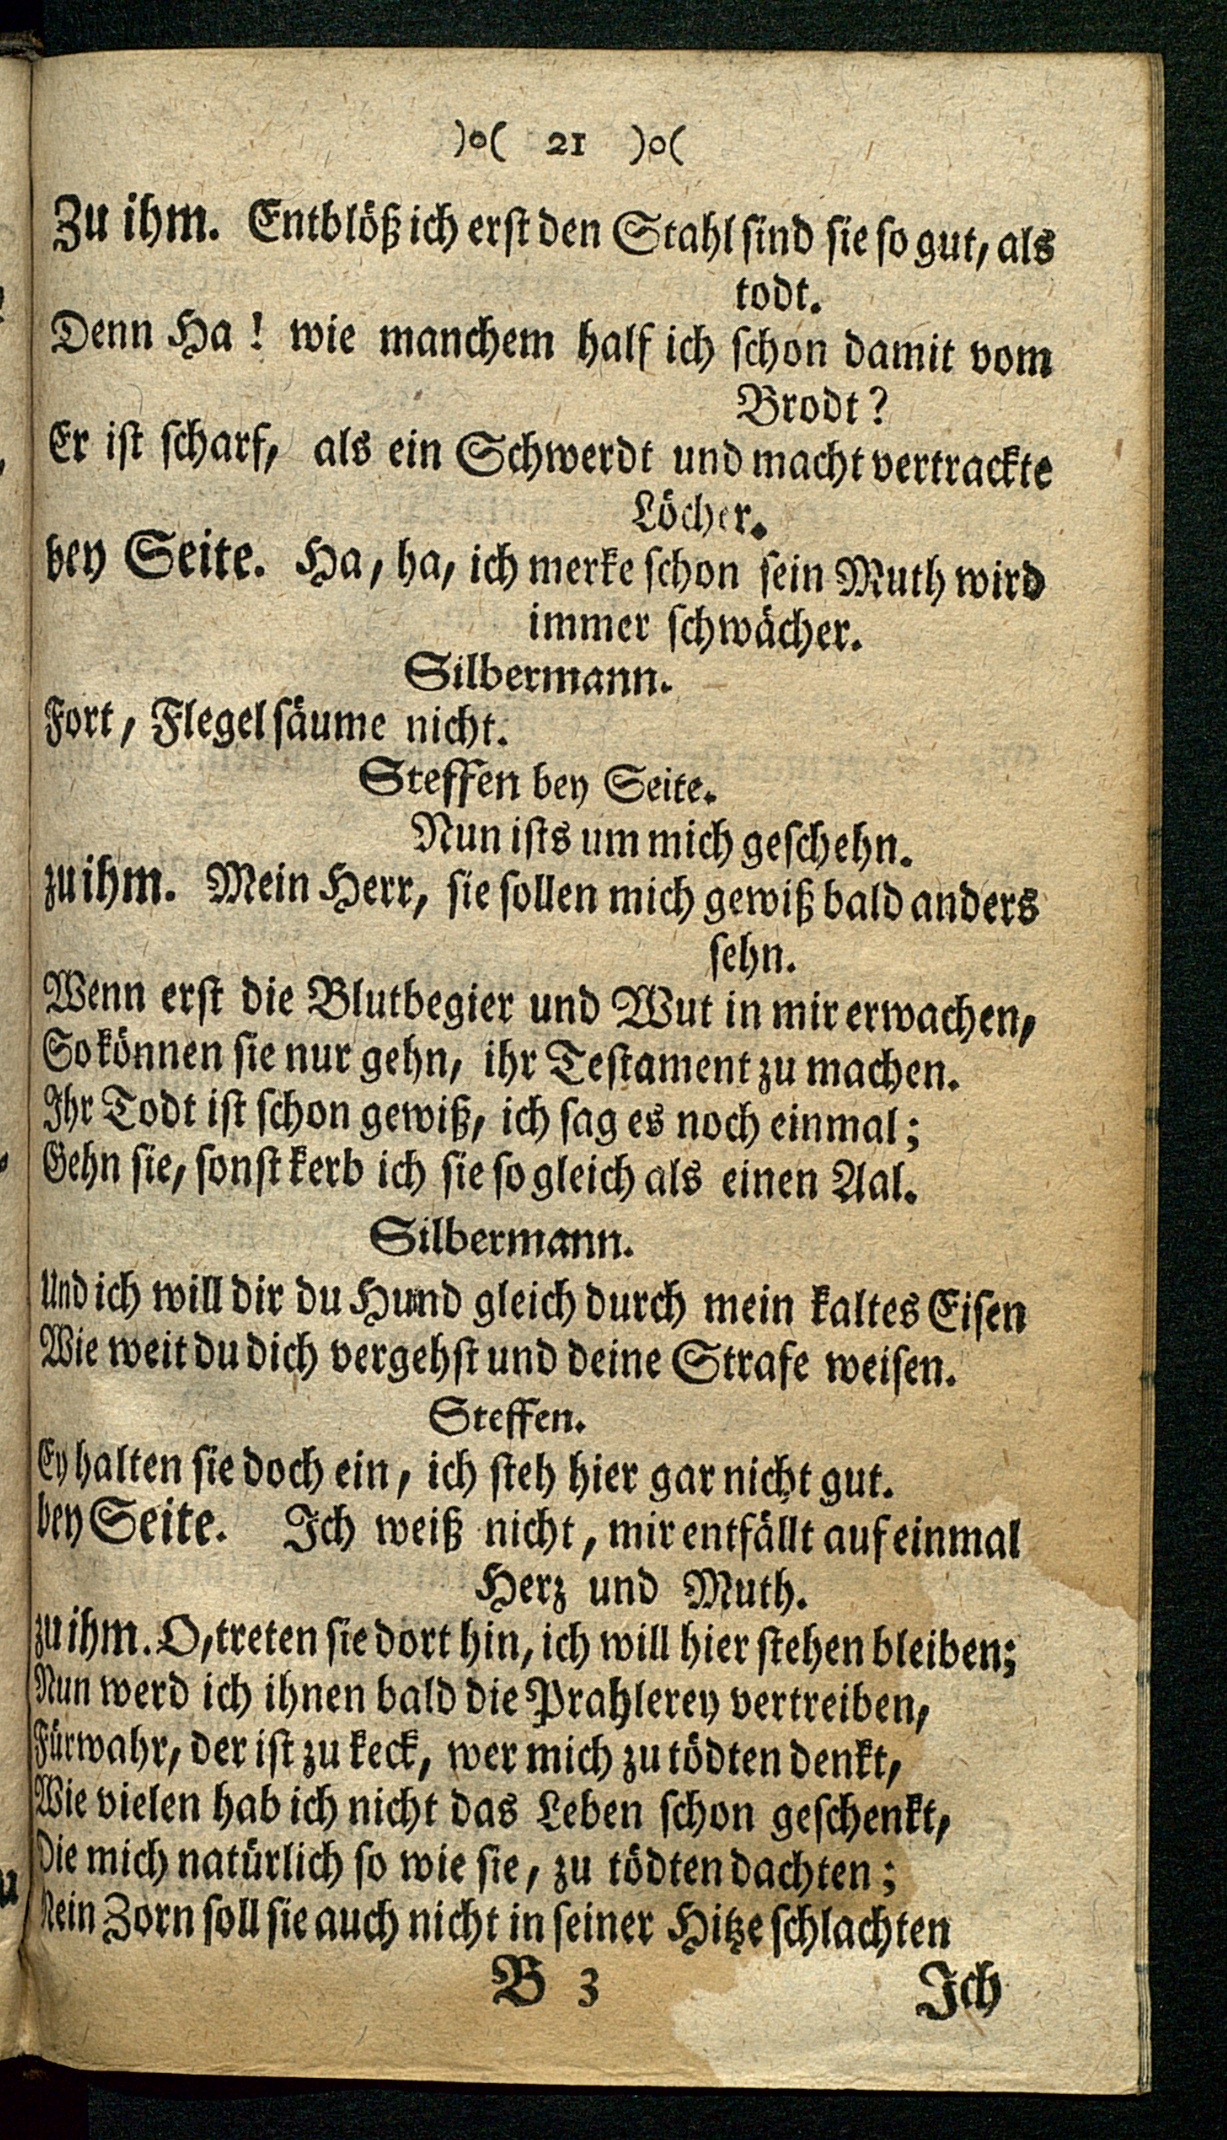 )o( 21 )o(
Zu ihm. Entblöß ich erst den Stahl sind sie so gut, als
todt.
Denn Ha! wie manchem half ich schon damit vom
Brodt?
Er ist scharf, als ein Schwerdt und macht vertrackte
Löcher.
bey Seite. Ha, ha, ich merke schon sein Muth wird
immer schwächer.
Silbermann.
Fort, Flegel säume nicht.
Steffen bey Seite.
Nun ists um mich geschehn.
zu ihm. Mein Herr, sie sollen mich gewiß bald anders
sehn.
Wenn erst die Blutbegier und Wut in mir erwachen,
So können sie nur gehn, ihr Testament zu machen.
Ihr Todt ist schon gewiß, ich sag es noch einmal;
Gehn sie, sonst kerb ich sie so gleich als einen Aal.
Silbermann.
Und ich will dir du Hund gleich durch mein kaltes Eisen
Wie weit du dich vergehst und deine Strafe weisen.
Steffen.
Ey halten sie doch ein, ich steh hier gar nicht gut.
bey Seite. Ich weiß nicht, mir entfällt auf einmal
Herz und Muth.
zu ihm. O, treten sie dort hin, ich will hier stehen bleiben;
Nun werd ich ihnen bald die Prahlerey vertreiben,
Fürwahr, der ist zu keck, wer mich zu tödten denkt,
Wie vielen hab ich nicht das Leben schon geschenkt,
Die mich natürlich so wie sie, zu tödten dachten;
Mein Zorn soll sie auch nicht in seiner Hitze schlachten
B 3 Ich